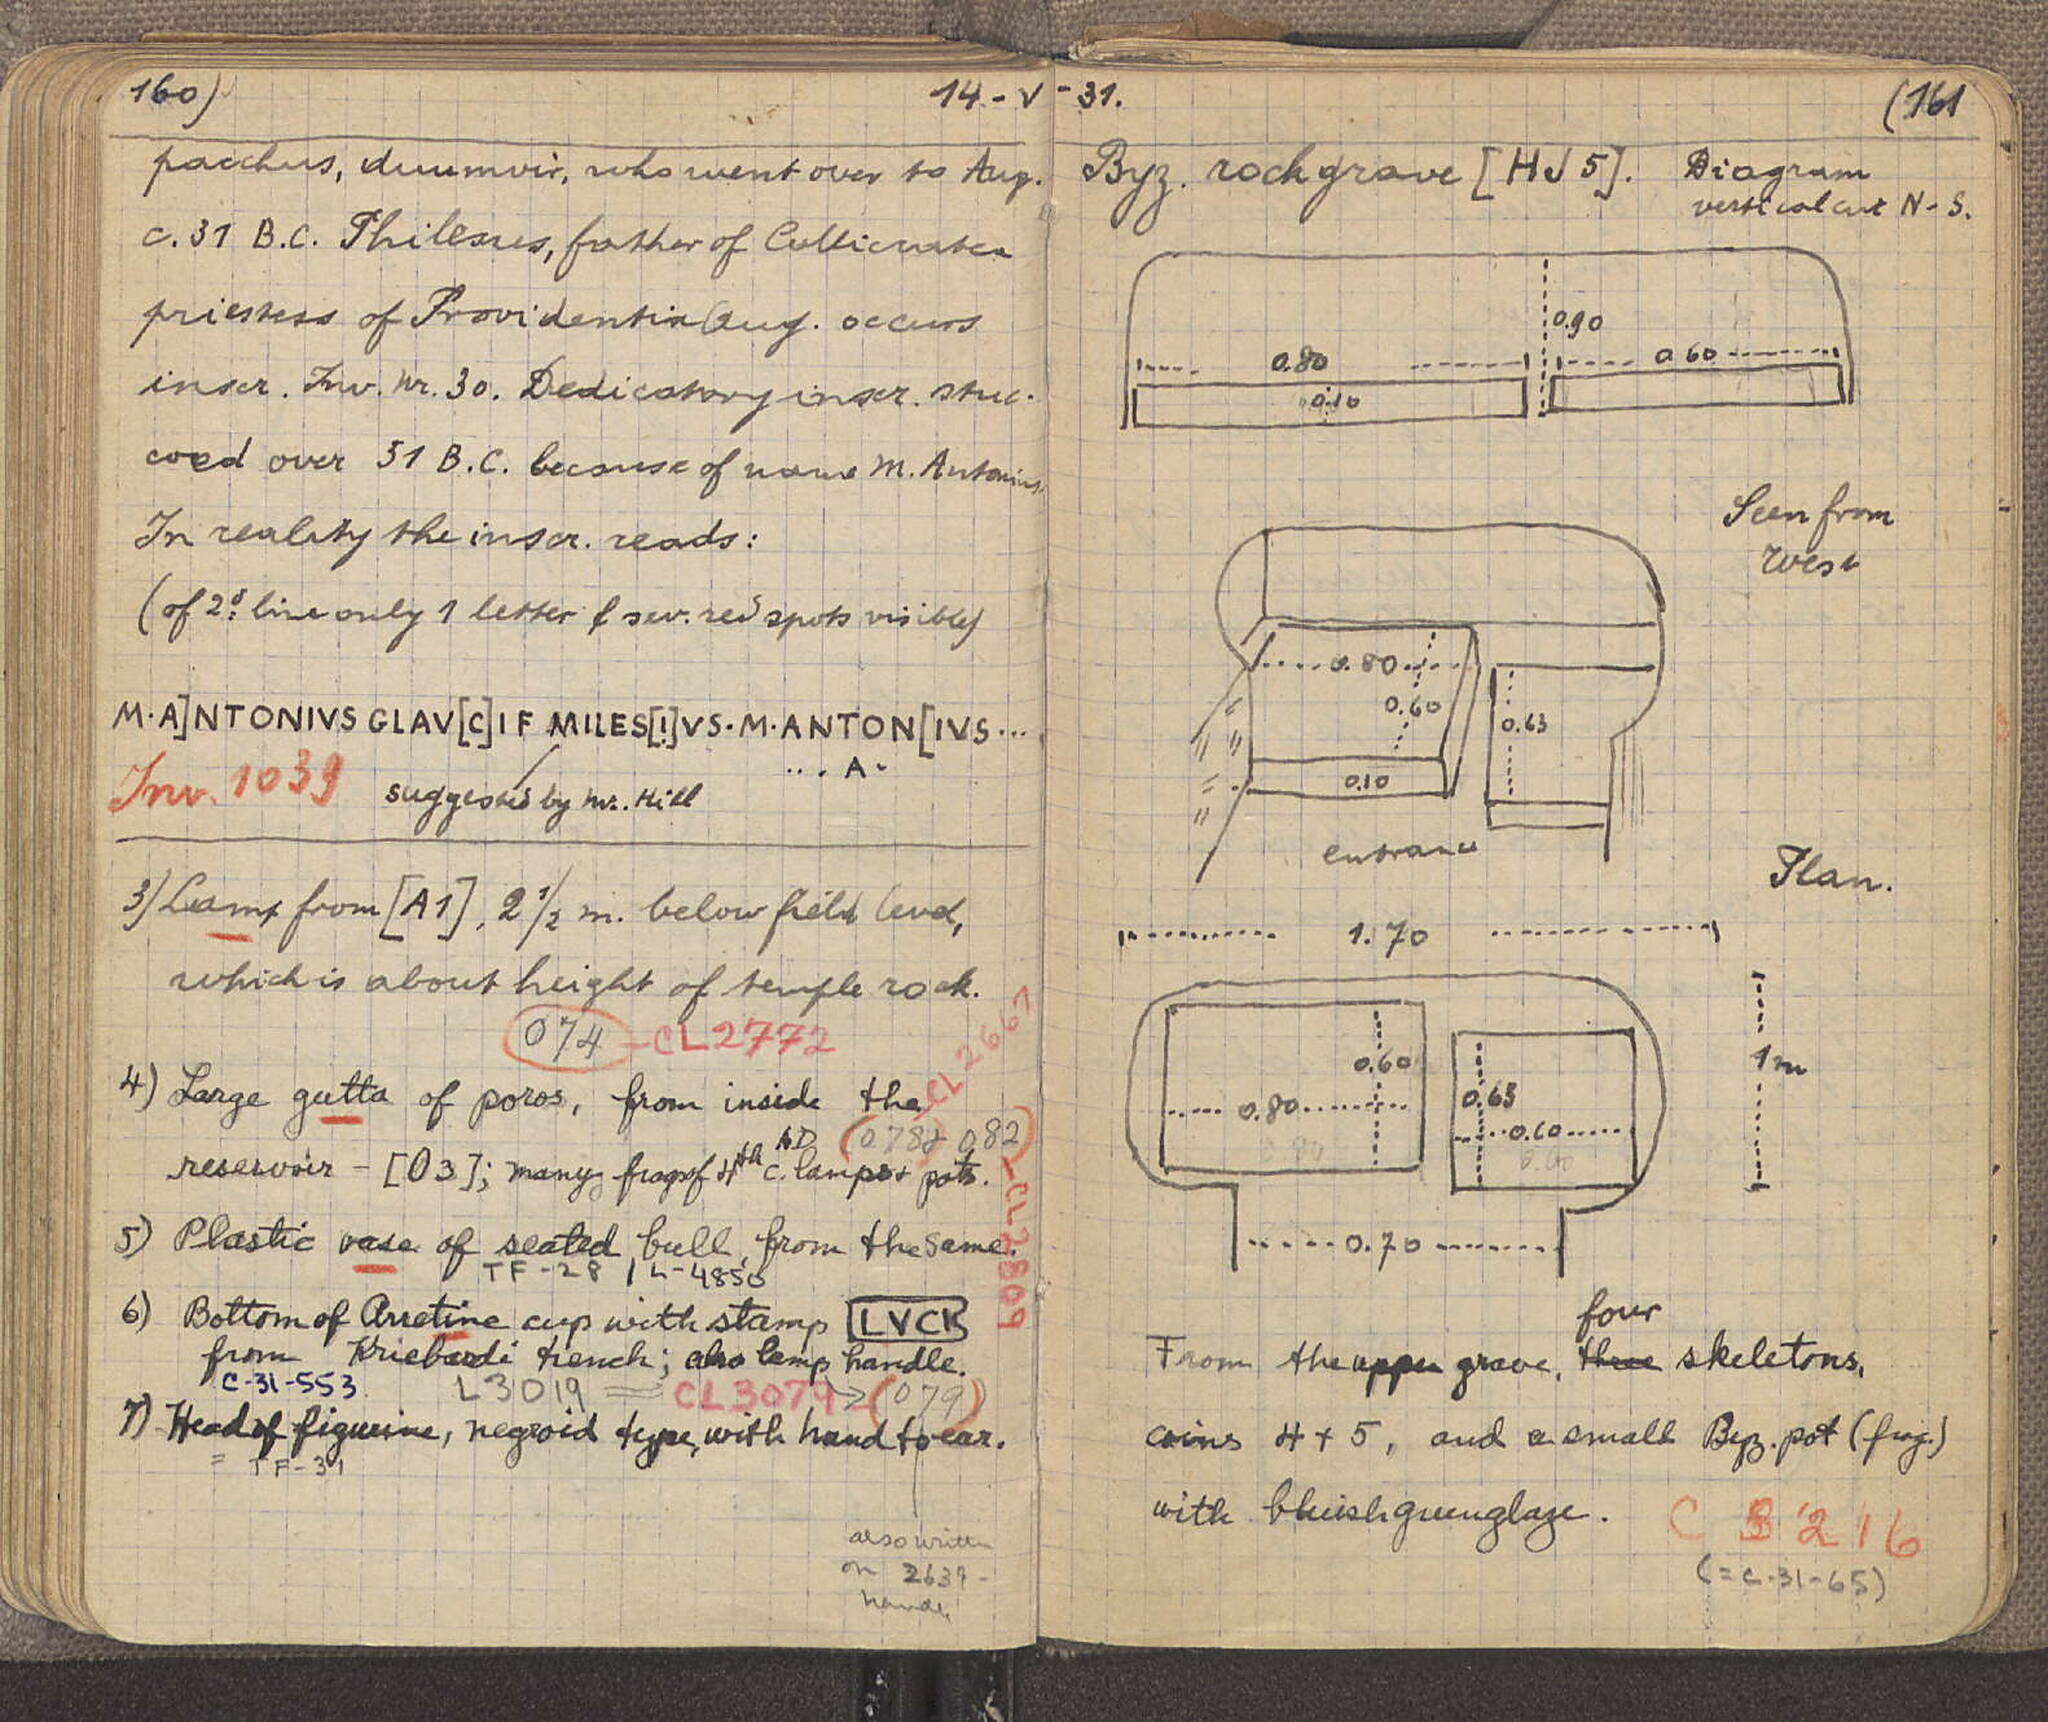 160)
14-V-31.
pacchus, duumvir, who went over to Aug.
c. 31 B.C. Philesus, father of Callicratea
priestess of Providentia Aug. occurs
inscr. Inv. Nr. 30. Dedicatory inscr. stuc-
coed over 31 B.C. because of name M. Antonius.
In reality the inscr. reads:
(of 2d line only 1 letter & sev. red spots visible)
M·A]NTONIVS GLAV[C]IF MILES[I]VS·M·ANTON[IVS...
... A·
Inv. 1039
suggested by Mr. Hill
3) Lamp from [A1], 2 1/2 m. below field level,
which is about height of temple rock.
074 - CL2772
CL 2667
4) Large gutta of poros, from inside the
(078 + 082)
reservoir - [O3]; many frags of 4th c. AD lamps + pots.
CL2809
5) Plastic vase of seated bull, from the same.
TF-28 / L-4850
6) Bottom of Arretine cup with stamp LVCK
from Kriebardi trench; also lamp handle.
C-31-553
L3019 = CL3079 → (079)
7) Head of figurine, negroid type, with hand to ear.
= TF-31
also written
on 2639 -
handle
(161
Byz. rock grave [HJ5]. Diagram
vertical cut N-S.
0.90
0.80
0.60
0.10
Seen from
West
0.80
0.60
0.63
0.10
entrance
Plan.
1.70
0.60
0.80
0.63
0.60
1 m
0.70
four
From the upper grave, three skeletons,
coins 4 + 5, and a small Byz. pot (frg.)
with bluish green glaze.
C 3216
(= C-31-65)